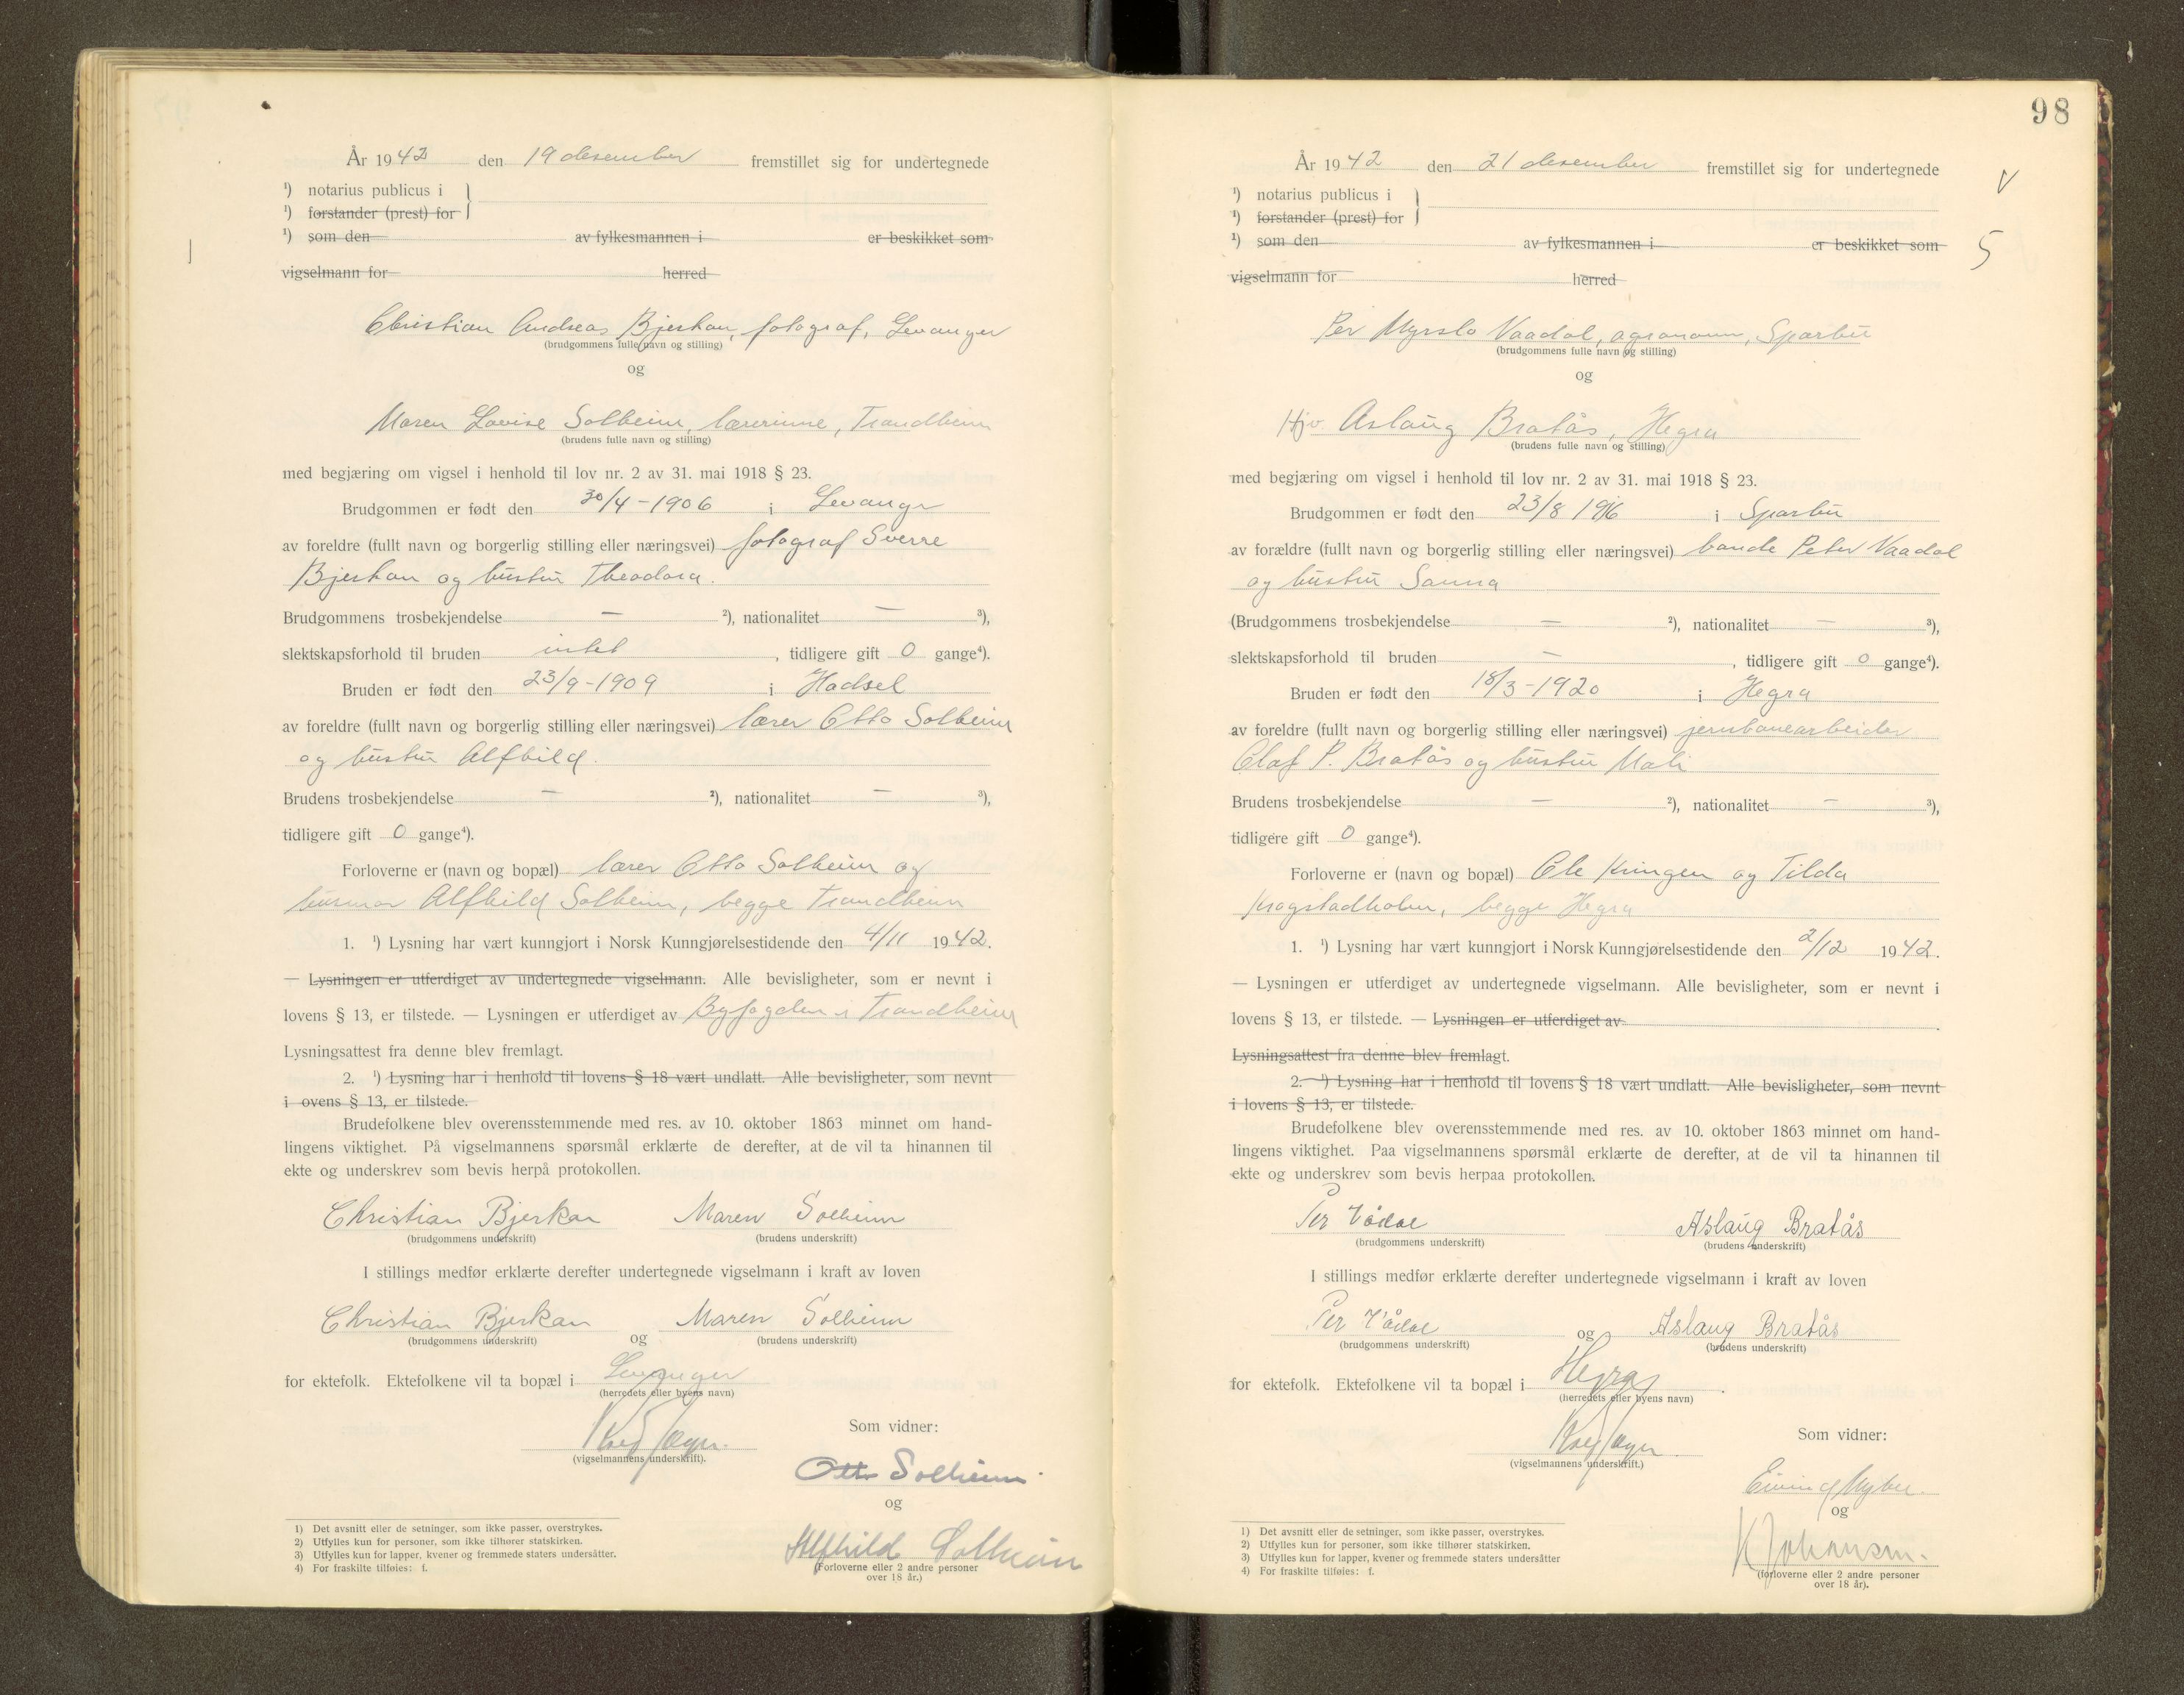 År 1942 den 19 desember fremstillet sig for undertegnede
¹) notarius publicus i
¹) forstander (prest) for
¹) som den av fylkesmannen i er beskikket som
vigselmann for herred
Christian Andreas Bjerkan, fotograf, Levanger
(brudgommens fulle navn og stilling)
og
Maren Lovise Solheim, lærerinne, Trondheim
(brudens fulle navn og stilling)
med begjæring om vigsel i henhold til lov nr. 2 av 31. mai 1918 § 23.
Brudgommen er født den 30/4-1906 i Levanger
av foreldre (fullt navn og borgerlig stilling eller næringsvei) fotograf Sverre
Bjerkan og hustru Theodora.
Brudgommens trosbekjendelse — ²), nationalitet — ³),
slektskapsforhold til bruden intet, tidligere gift 0 gange⁴).
Bruden er født den 23/9-1909 i Hadsel
av foreldre (fullt navn og borgerlig stilling eller næringsvei) lærer Otto Solheim
og hustru Alfhild.
Brudens trosbekjendelse — ²), nationalitet — ³),
tidligere gift 0 gange⁴).
Forloverne er (navn og bopæl) lærer Otto Solheim og
husmor Alfhild Solheim, begge Trondheim
1. ¹) Lysning har vært kunngjort i Norsk Kunngjørelsestidende den 4/11 1942.
— Lysningen er utferdiget av undertegnede vigselmann. Alle bevisligheter, som er nevnt i
lovens § 13, er tilstede. — Lysningen er utferdiget av Byfogden i Trondheim
Lysningsattest fra denne blev fremlagt.
2. ¹) Lysning har i henhold til lovens § 18 vært undlatt. Alle bevisligheter, som nevnt
i ovens § 13, er tilstede.
Brudefolkene blev overensstemmende med res. av 10. oktober 1863 minnet om hand-
lingens viktighet. På vigselmannens spørsmål erklærte de derefter, at de vil ta hinannen til
ekte og underskrev som bevis herpå protokollen.
Christian Bjerkan Maren Solheim
(brudgommens underskrift) (brudens underskrift)
I stillings medfør erklærte derefter undertegnede vigselmann i kraft av loven
Christian Bjerkan og Maren Solheim
(brudgommens underskrift) (brudens underskrift)
for ektefolk. Ektefolkene vil ta bopæl i Levanger
(herredets eller byens navn)
Som vidner:
(vigselmannens underskrift).
Otto Solheim
og
Alfhild Solheim
(Forloverne eller 2 andre personer
over 18 år.)
1) Det avsnitt eller de setninger, som ikke passer, overstrykes.
2) Utfylles kun for personer, som ikke tilhører statskirken.
3) Utfylles kun for lapper, kvener og fremmede staters undersåtter.
4) For fraskilte tilføies: f.
98
År 1942 den 21 desember fremstillet sig for undertegnede
V
¹) notarius publicus i
¹) forstander (prest) for
¹) som den av fylkesmannen i er beskikket som
5
vigselmann for herred
Per Myrslo Vaadal, agronom, Sparbu
(brudgommens fulle navn og stilling)
og
Hjv. Aslaug Bratås, Hegra
(brudens fulle navn og stilling)
med begjæring om vigsel i henhold til lov nr. 2 av 31. mai 1918 § 23.
Brudgommen er født den 23/8 1916 i Sparbu
av forældre (fullt navn og borgerlig stilling eller næringsvei) bonde Peter Vaadal
og hustru Sanna
(Brudgommens trosbekjendelse — ²), nationalitet — ³),
slektskapsforhold til bruden —, tidligere gift 0 gange⁴).
Bruden er født den 18/3-1920 i Hegra
av foreldre (fullt navn og borgerlig stilling eller næringsvei) jernbanearbeider
Olaf P. Bratås og hustru Mali
Brudens trosbekjendelse — ²), nationalitet — ³),
tidligere gift 0 gange⁴).
Forloverne er (navn og bopæl) Ole Kringen og Tilda
Krogstadholm, begge Hegra
1. ¹) Lysning har vært kunngjort i Norsk Kunngjørelsestidende den 2/12 1942.
— Lysningen er utferdiget av undertegnede vigselmann. Alle bevisligheter, som er nevnt i
lovens § 13, er tilstede. — Lysningen er utferdiget av
Lysningsattest fra denne blev fremlagt.
2. ¹) Lysning har i henhold til lovens § 18 vært undlatt. Alle bevisligheter, som nevnt
i lovens § 13, er tilstede.
Brudefolkene blev overensstemmende med res. av 10. oktober 1863 minnet om hand-
lingens viktighet. Paa vigselmannens spørsmål erklærte de derefter, at de vil ta hinannen til
ekte og underskrev som bevis herpaa protokollen.
Per Vådal Aslaug Bratås
(brudgommens underskrift) (brudens underskrift)
I stillings medfør erklærte derefter undertegnede vigselmann i kraft av loven
Per Vådal og Aslaug Bratås
(brudgommens underskrift) (brudens underskrift)
for ektefolk. Ektefolkene vil ta bopæl i Hegra.
(herredets eller byens navn)
Som vidner:
(vigselmannens underskrift.)
og
K Johansen.
(forloverne eller 2 andre personer
over 18 år).
1) Det avsnitt eller de setninger, som ikke passer, overstrykes.
2) Utfylles kun for personer, som ikke tilhører statskirken.
3) Utfylles kun for lapper, kvener og fremmede staters undersåtter
4) For fraskilte tilføies: f.